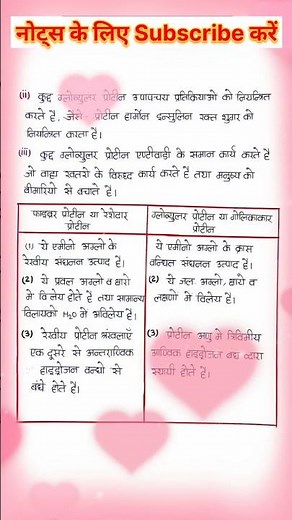 नोट्स के लिए Subscribe करें
(ii) कुछ ग्लोब्युलर प्रोटीन उपापचय प्रतिक्रियाओं को नियन्त्रित
करते हैं, जैसे- प्रोटीन हार्मोन इन्सुलिन रक्त शुगर को
नियन्त्रित करता है।
(iii) कुछ ग्लोब्युलर प्रोटीन एण्टीबाडी के समान कार्य करते हैं
जो बाह्य खतरों के विरुद्ध कार्य करते हैं तथा मनुष्य को
बीमारियों से बचाते हैं।
फाइबर प्रोटीन या रेशेदार
प्रोटीन
(1) ये एमीनो अम्लों के
रेखीय संघनन उत्पाद हैं।
(2) ये प्रबल अम्लों व क्षारों
में विलेय होते हैं तथा सामान्य
विलायकों H₂O में अविलेय हैं।
(3) रेखीय प्रोटीन श्रंखलाएँ
एक दूसरे से अन्तराण्विक
हाइड्रोजन बन्धों से
बंधे होते हैं।
ग्लोब्युलर प्रोटीन या गोलिकाकार
प्रोटीन
ये एमीनो अम्लों के क्रास
बन्धित संघनन उत्पाद हैं।
(2) ये जल अम्लों, क्षारों व
लवणों में विलेय हैं।
(3) प्रोटीन अणु में त्रिविमीय
आण्विक हाइड्रोजन बन्ध द्वारा
स्थायी होते हैं।